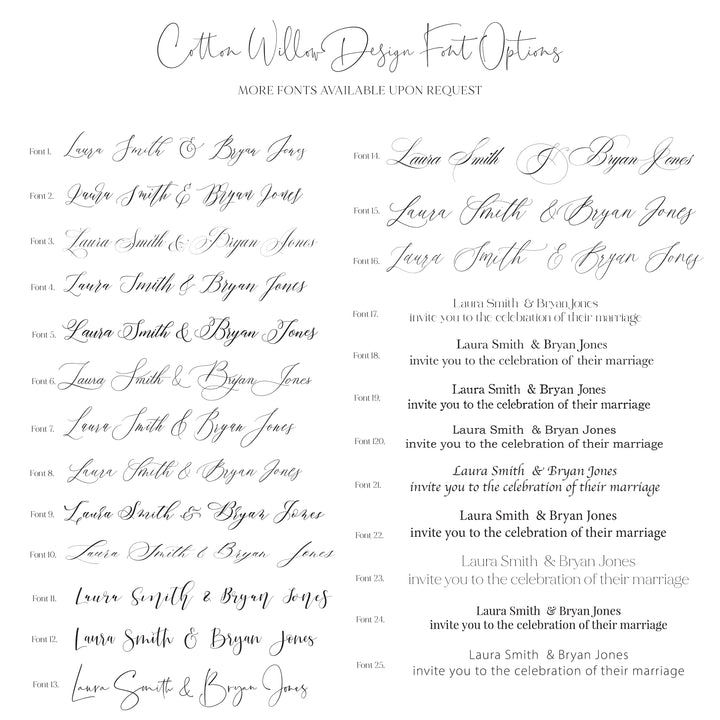 Cotton Willow Design Font Options
MORE FONTS AVAILABLE UPON REQUEST
Font 1. Laura Smith & Bryan Jones
Font 2. Laura Smith & Bryan Jones
Font 3. Laura Smith & Bryan Jones
Font 4. Laura Smith & Bryan Jones
Font 5. Laura Smith & Bryan Jones
Font 6. Laura Smith & Bryan Jones
Font 7. Laura Smith & Bryan Jones
Font 8. Laura Smith & Bryan Jones
Font 9. Laura Smith & Bryan Jones
Font 10. Laura Smith & Bryan Jones
Font 11. Laura Smith & Bryan Jones
Font 12. Laura Smith & Bryan Jones
Font 13. Laura Smith & Bryan Jones
Font 14. Laura Smith & Bryan Jones
Font 15. Laura Smith & Bryan Jones
Font 16. Laura Smith & Bryan Jones
Font 17. Laura Smith & Bryan Jones
invite you to the celebration of their marriage
Font 18. Laura Smith & Bryan Jones
invite you to the celebration of their marriage
Font 19. Laura Smith & Bryan Jones
invite you to the celebration of their marriage
Font 120. Laura Smith & Bryan Jones
invite you to the celebration of their marriage
Font 21. Laura Smith & Bryan Jones
invite you to the celebration of their marriage
Font 22. Laura Smith & Bryan Jones
invite you to the celebration of their marriage
Font 23. Laura Smith & Bryan Jones
invite you to the celebration of their marriage
Font 24. Laura Smith & Bryan Jones
invite you to the celebration of their marriage
Font 25. Laura Smith & Bryan Jones
invite you to the celebration of their marriage